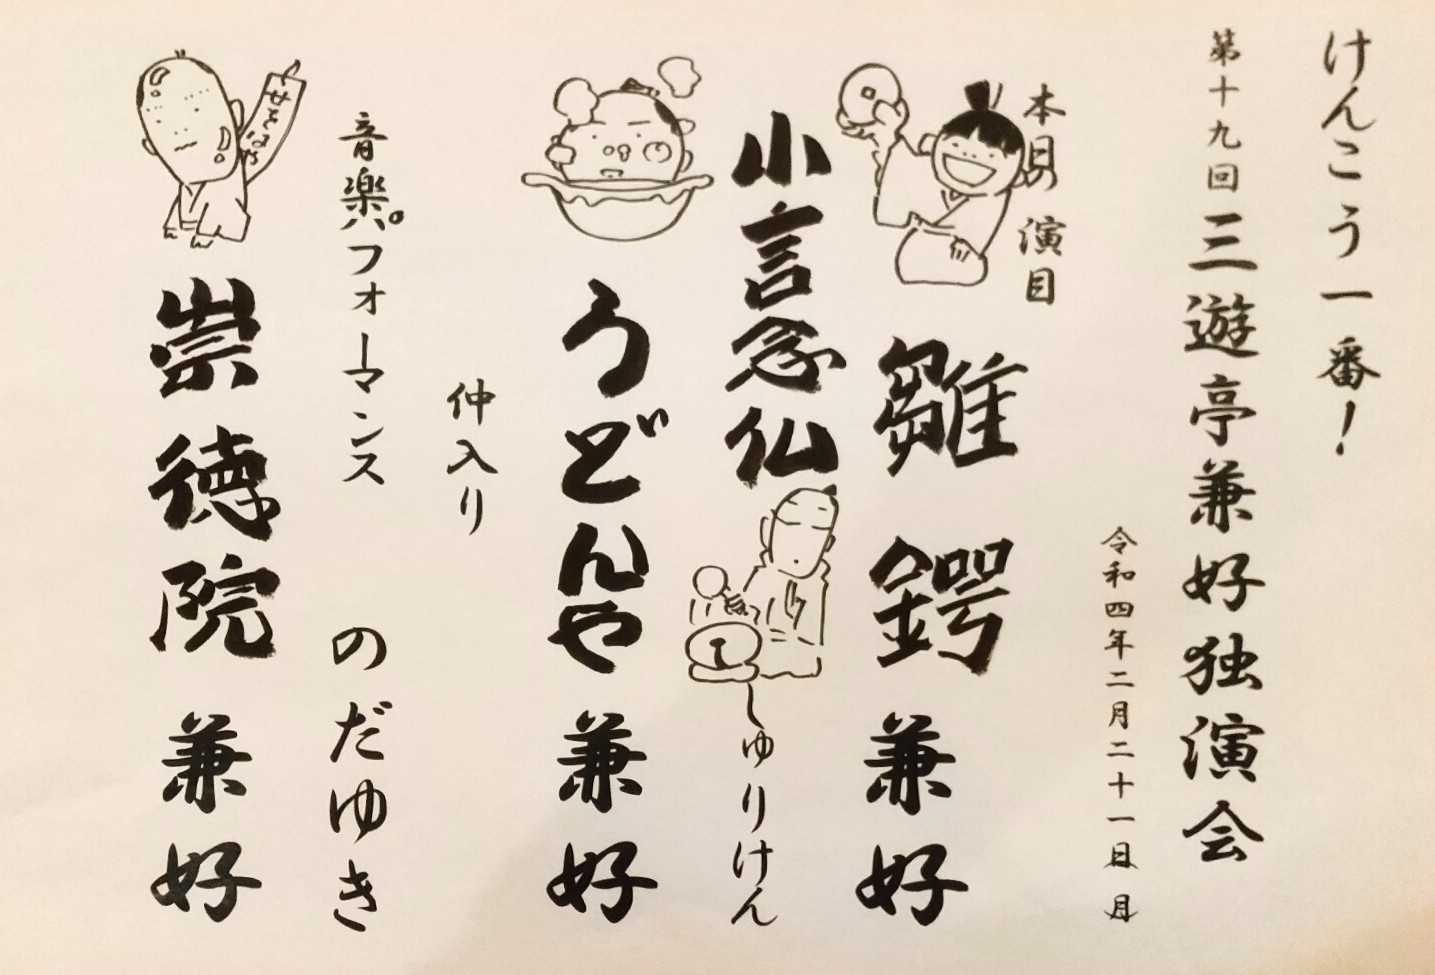 けんこう一番！
第十九回 三遊亭兼好独演会
令和四年二月二十一日 月
本日の演目
雛鍔 兼好
小言念仏 しゅりけん
うどんや 兼好
仲入り
音楽パフォーマンス のだゆき
せをはや
崇徳院 兼好